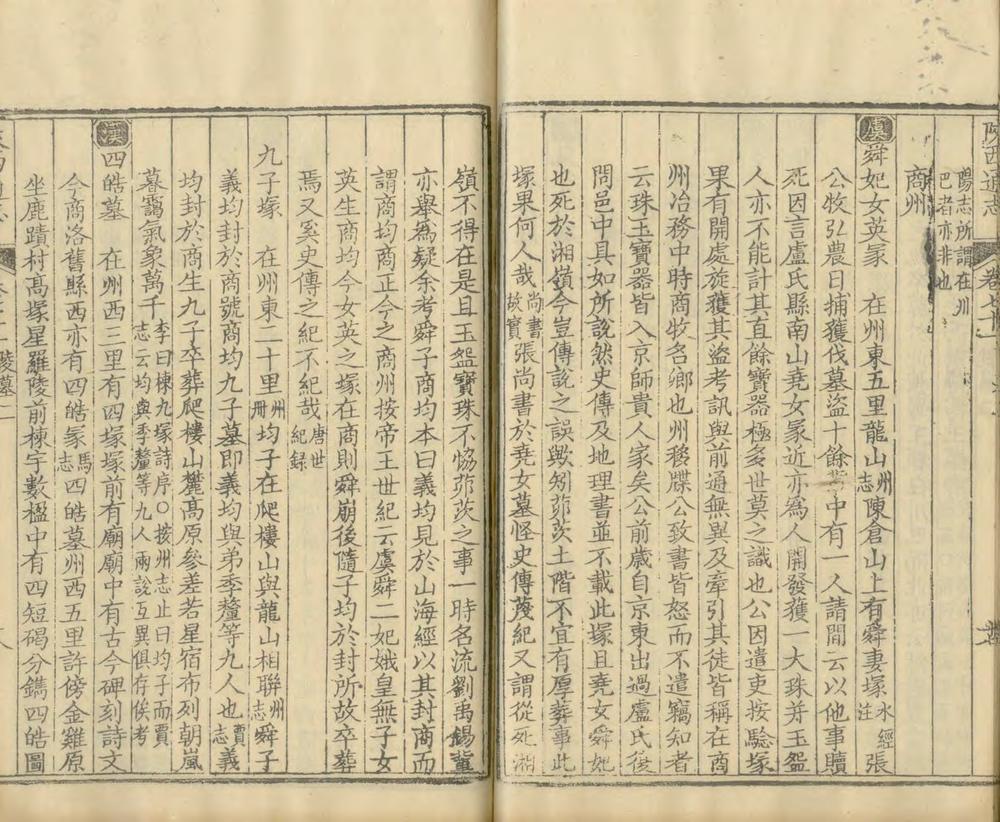 陽志所謂在州
巴者亦非也
商州
虞 舜妃女英冢 在州東五里龍山州志陳倉山上有舜妻塚水經注張
公牧弘農日捕獲伐墓盜十餘輩中有一人請間云以他事贖
死因言盧氏縣南山堯女冢近亦爲人開發獲一大珠并玉盌
人亦不能計其直餘寶器極多世莫之識也公因遣吏按驗塚
果有開處旋獲其盜考訊與前通無異及牽引其徒皆稱在商
州冶務中時商牧名卿也州移牒公致書皆怒而不遣竊知者
云珠玉寶器皆入京師貴人家矣公前歲自京東出過盧氏復
問邑中具如所說然史傳及地理書並不載此塚且堯女舜妃
也死於湘嶺今豈傳說之誤歟矧茆茨土階不宜有厚葬事此
塚果何人哉尚書故實張尚書於堯女墓怪史傳蔑紀又謂從死湘
嶺不得在是且玉盌寶珠不恊茆茨之事一時名流劉禹錫輩
亦舉為疑余考舜子商均本曰義均見於山海經以其封商而
謂商均商正今之商州按帝王世紀云虞舜二妃娥皇無子女
英生商均今女英之塚在商則舜崩後隨子均於封所故卒葬
焉又奚史傳之紀不紀哉唐世紀録
九子塚 在州東二十里州冊均子在爬樓山與龍山相聯州志舜子
義均封於商號商均九子墓即義均與弟季釐等九人也賈志義
均封於商生九子卒葬爬樓山麓高原參差若星宿布列朝嵐
暮靄氣象萬千李曰棟九塚詩序○按州志止曰均子而賈
志云均與季釐等九人兩說互異俱存俟考
漢 四皓墓 在州西三里有四塚塚前有廟廟中有古今碑刻詩文
今商洛舊縣西亦有四皓冢馬志四皓墓州西五里許傍金雞原
坐鹿蹟村高塚星羅陵前棟宇數楹中有四短碣分鐫四皓圖